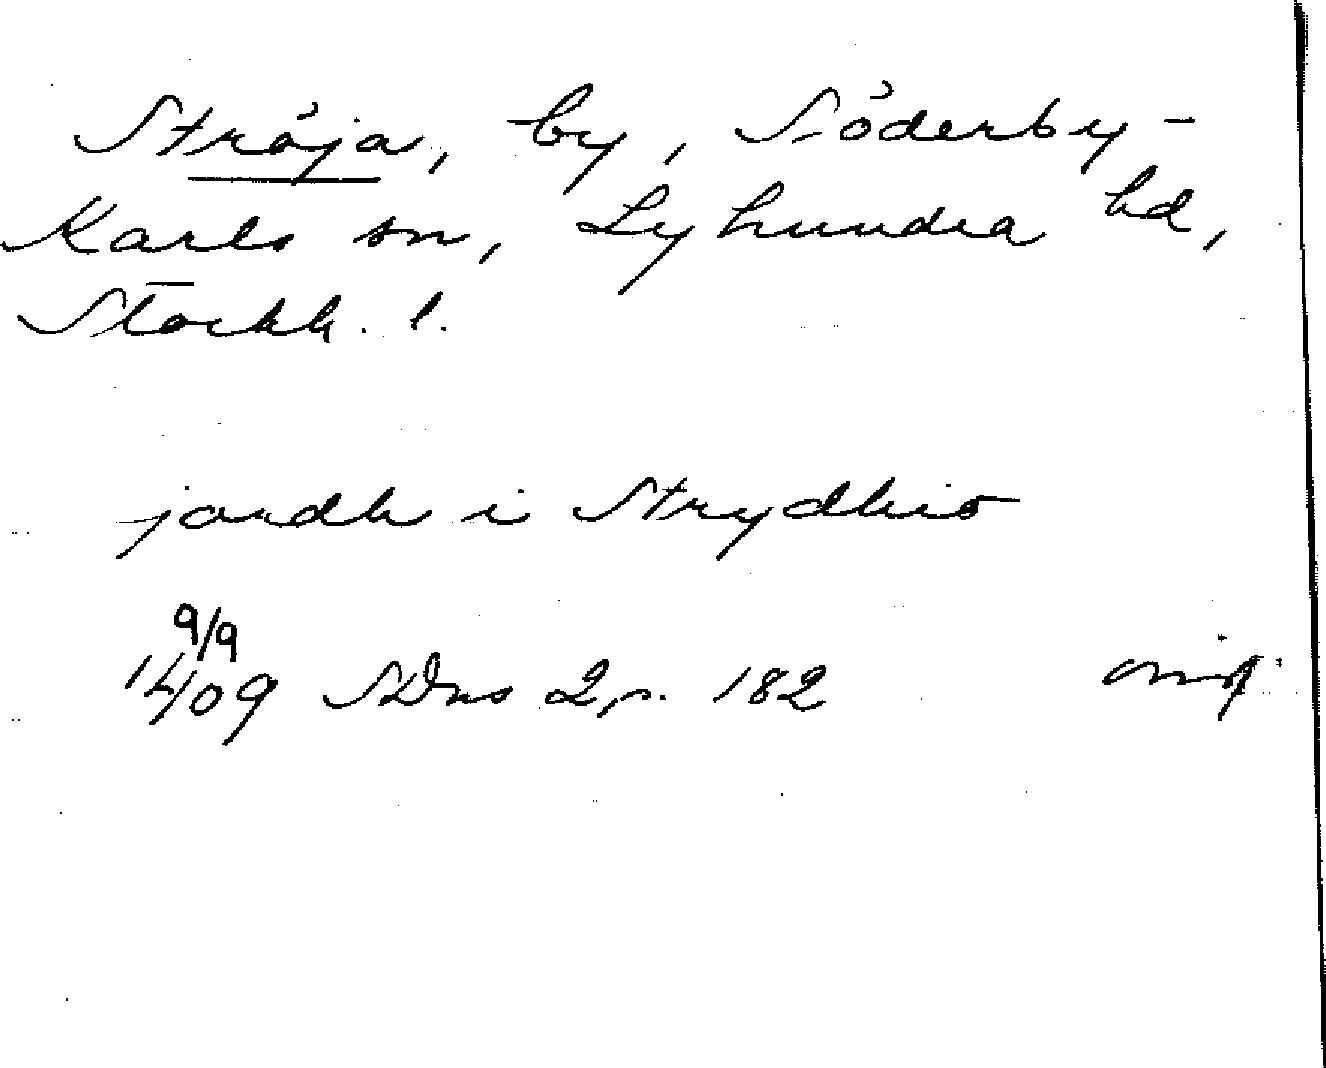 Ströja, by, Söderby-
Karls sn, Lyhundra hd,
Stockh. l.
jordh i Strydhio
9/9
1409 SDns 2, s. 182 orig.